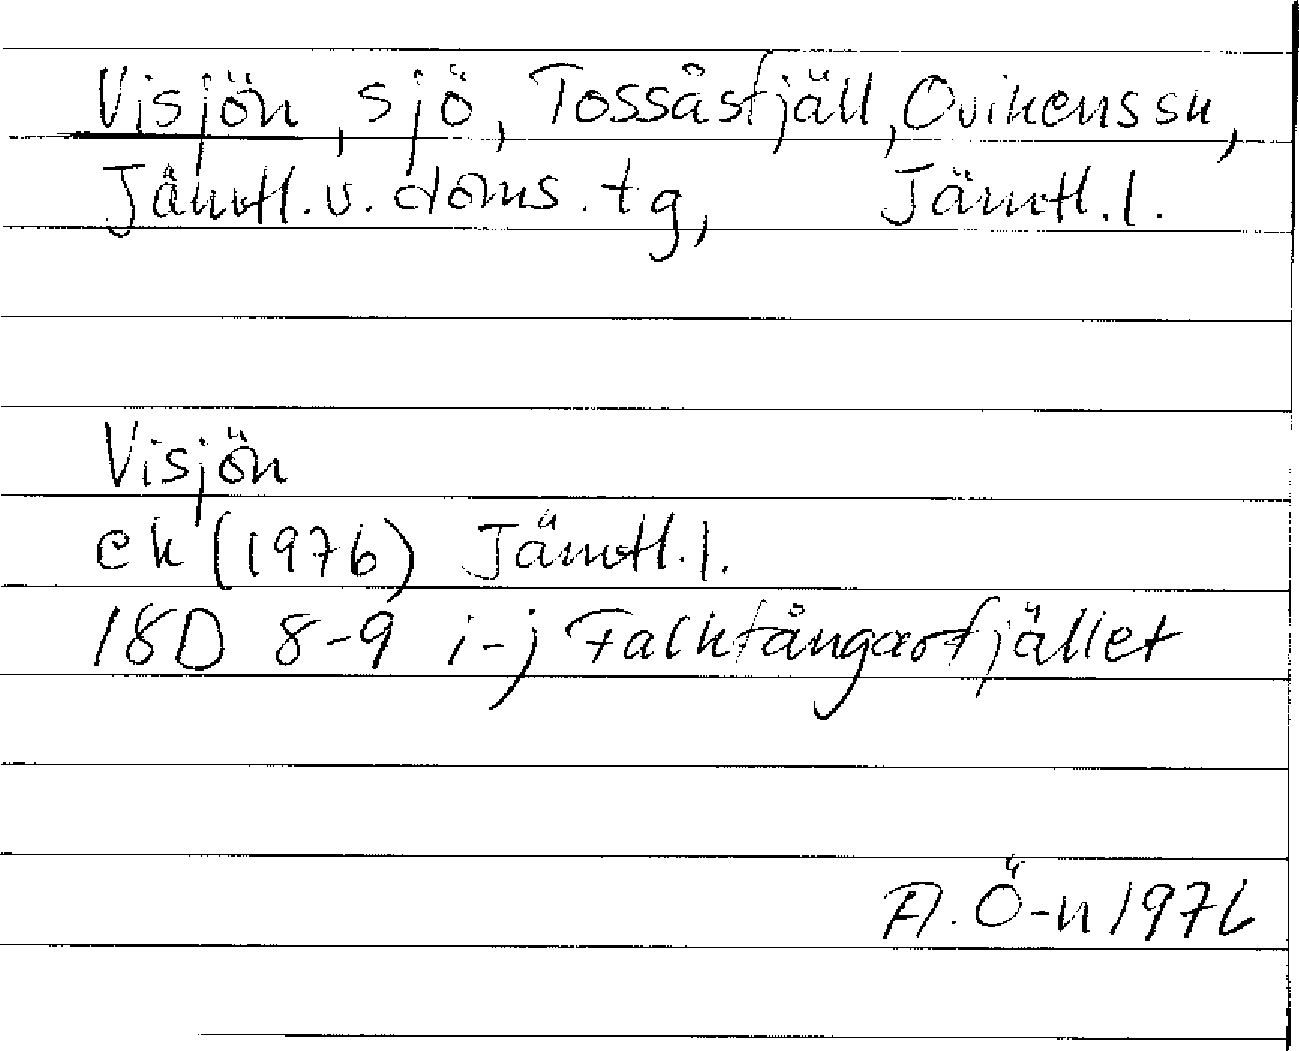 Visjön, sjö, Tossåsfjäll, Ovikens sn,
Jämtl. v. doms. tg, Jämtl. l.
Visjön
ek (1976) Jämtl. l.
18D 8-9 i-j Falkfångarfjället
A. Ö-n 1976